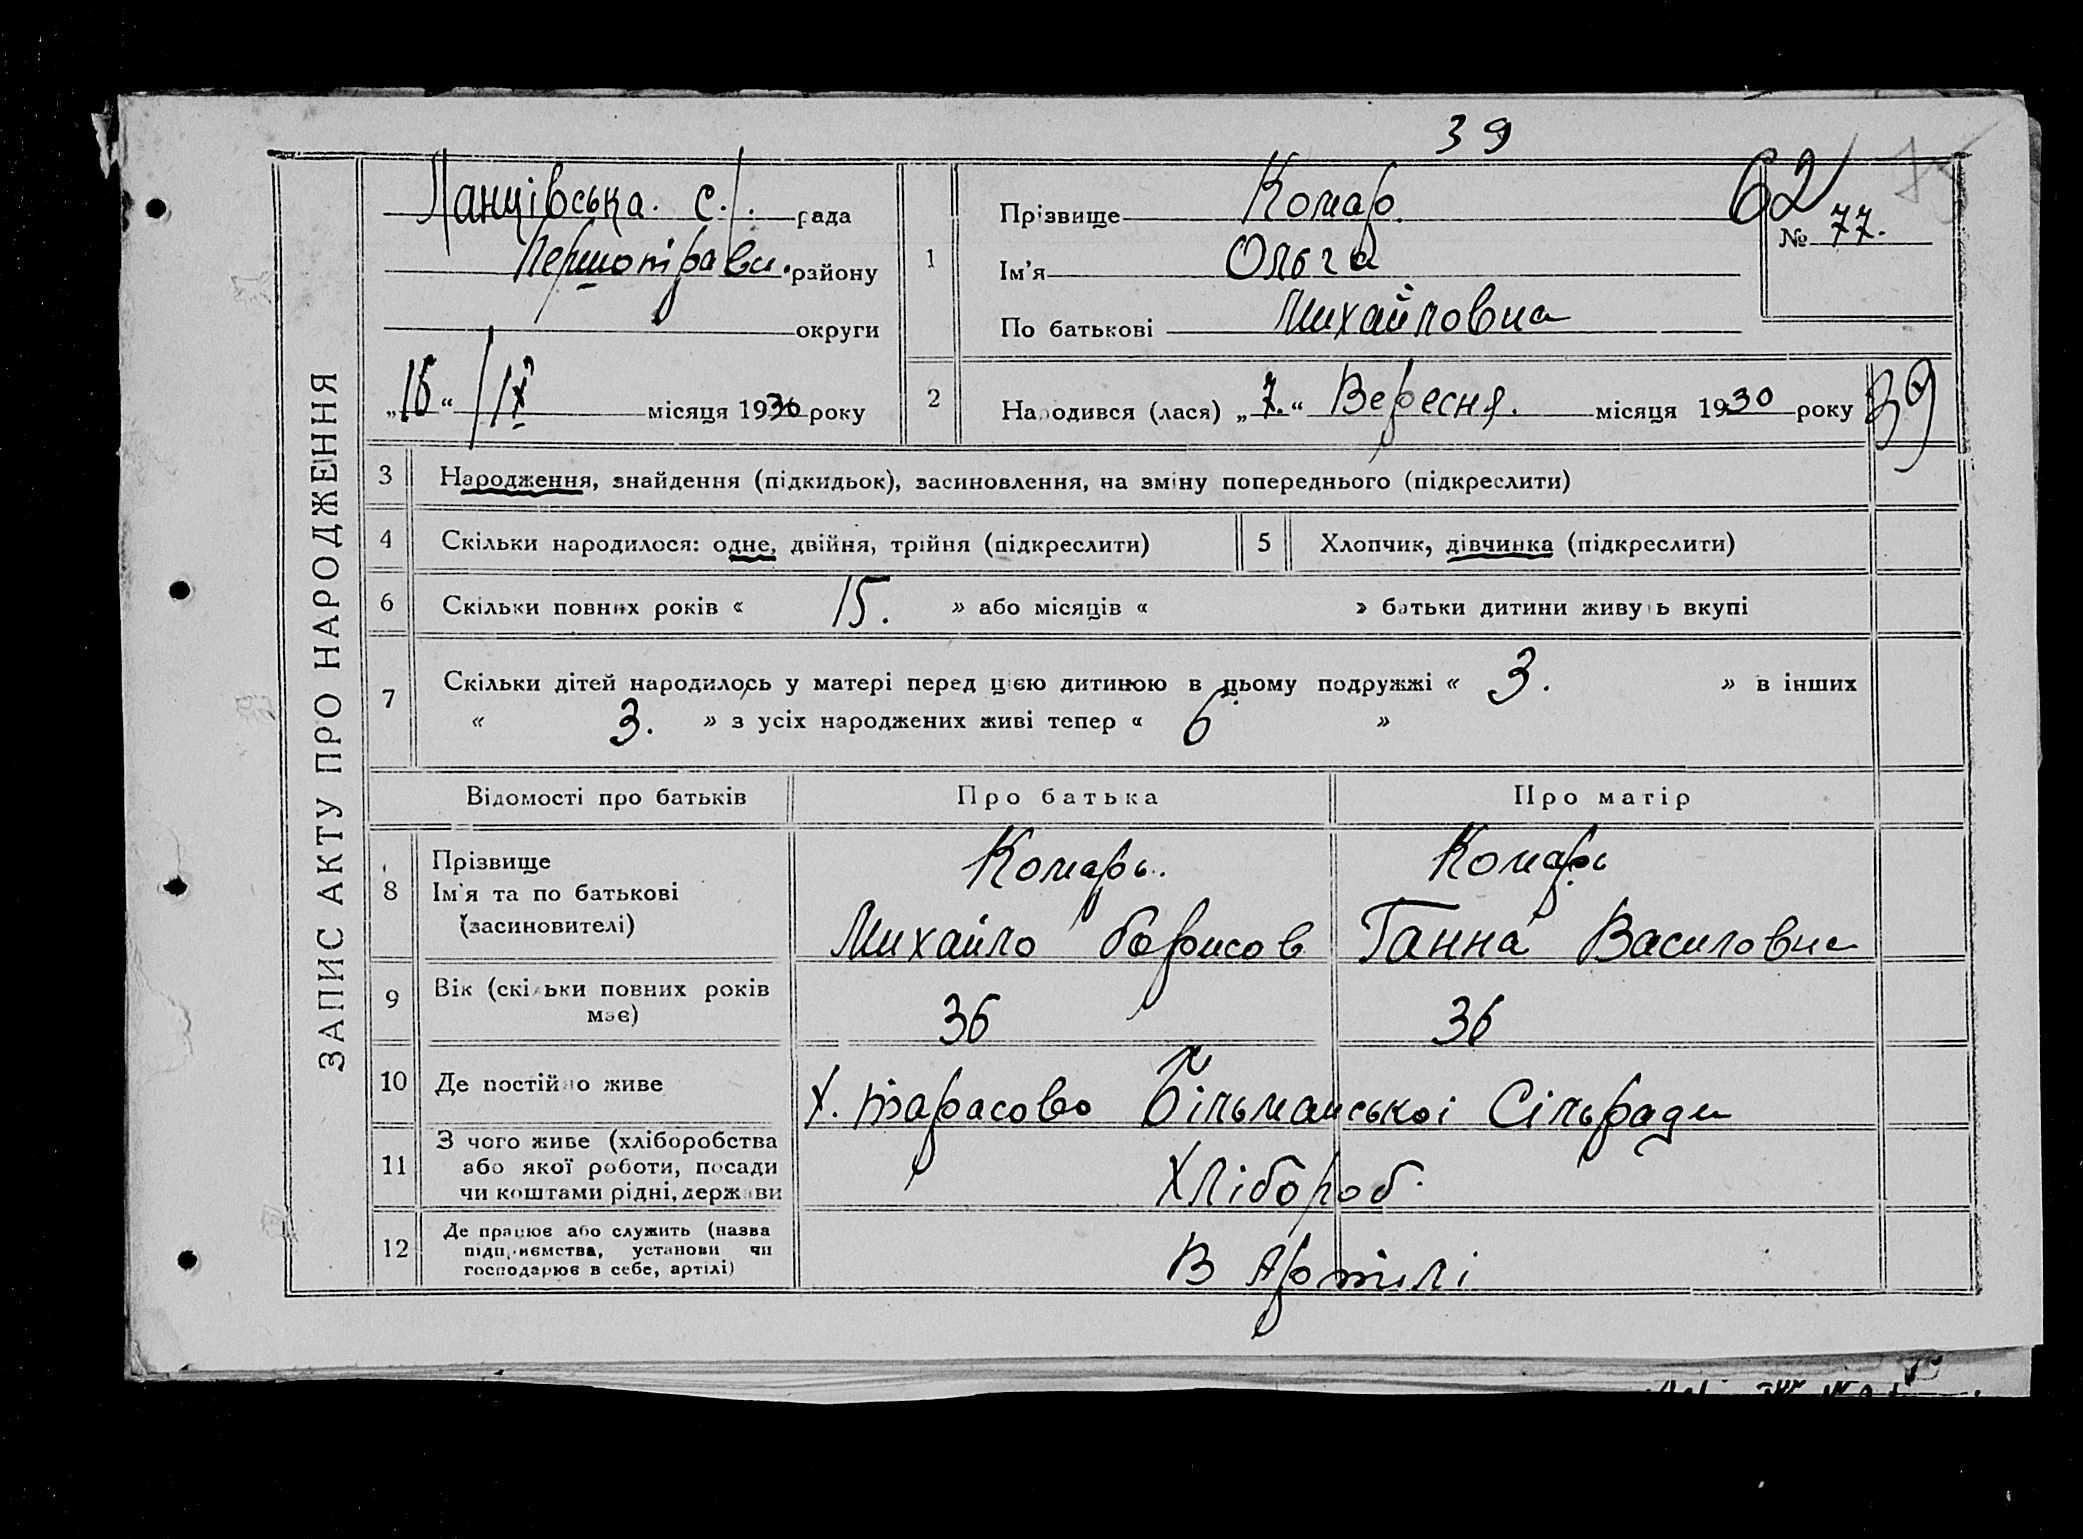 39
Ланцівська. с/. рада
Першотравн. району
округи
„16“ /IX місяця 1930 року
1
Прізвище Комар.
Ім'я Ольга
По батькові Михайловна
62
№ 77.
2
Народився (лася) „7.“ Вересня. місяця 1930 року
39
ЗАПИС АКТУ ПРО НАРОДЖЕННЯ
3 Народження, знайдення (підкидьок), засиновлення, на зміну попереднього (підкреслити)
4 Скільки народилося: одне, двійня, трійня (підкреслити) 5 Хлопчик, дівчинка (підкреслити)
6 Скільки повних років « 15. » або місяців « » батьки дитини живуть вкупі
7 Скільки дітей народилось у матері перед цією дитиною в цьому подружжі « 3. » в інших
« 3. » з усіх народжених живі тепер « 6 »
Відомості про батьків Про батька Про матір
8 Прізвище
Ім'я та по батькові
(засиновителі)
Комарь. Комарь
Михайло борисов Ганна Василовна
9 Вік (скільки повних років
має)
36 36
10 Де постійно живе
х. тарасово Більманської Сільради
11 З чого живе (хліборобства
або якої роботи, посади
чи коштами рідні, держави
Хлібороб.
12 Де працює або служить (назва
підприємства, установи чи
господарює в себе, артілі)
В Артилі